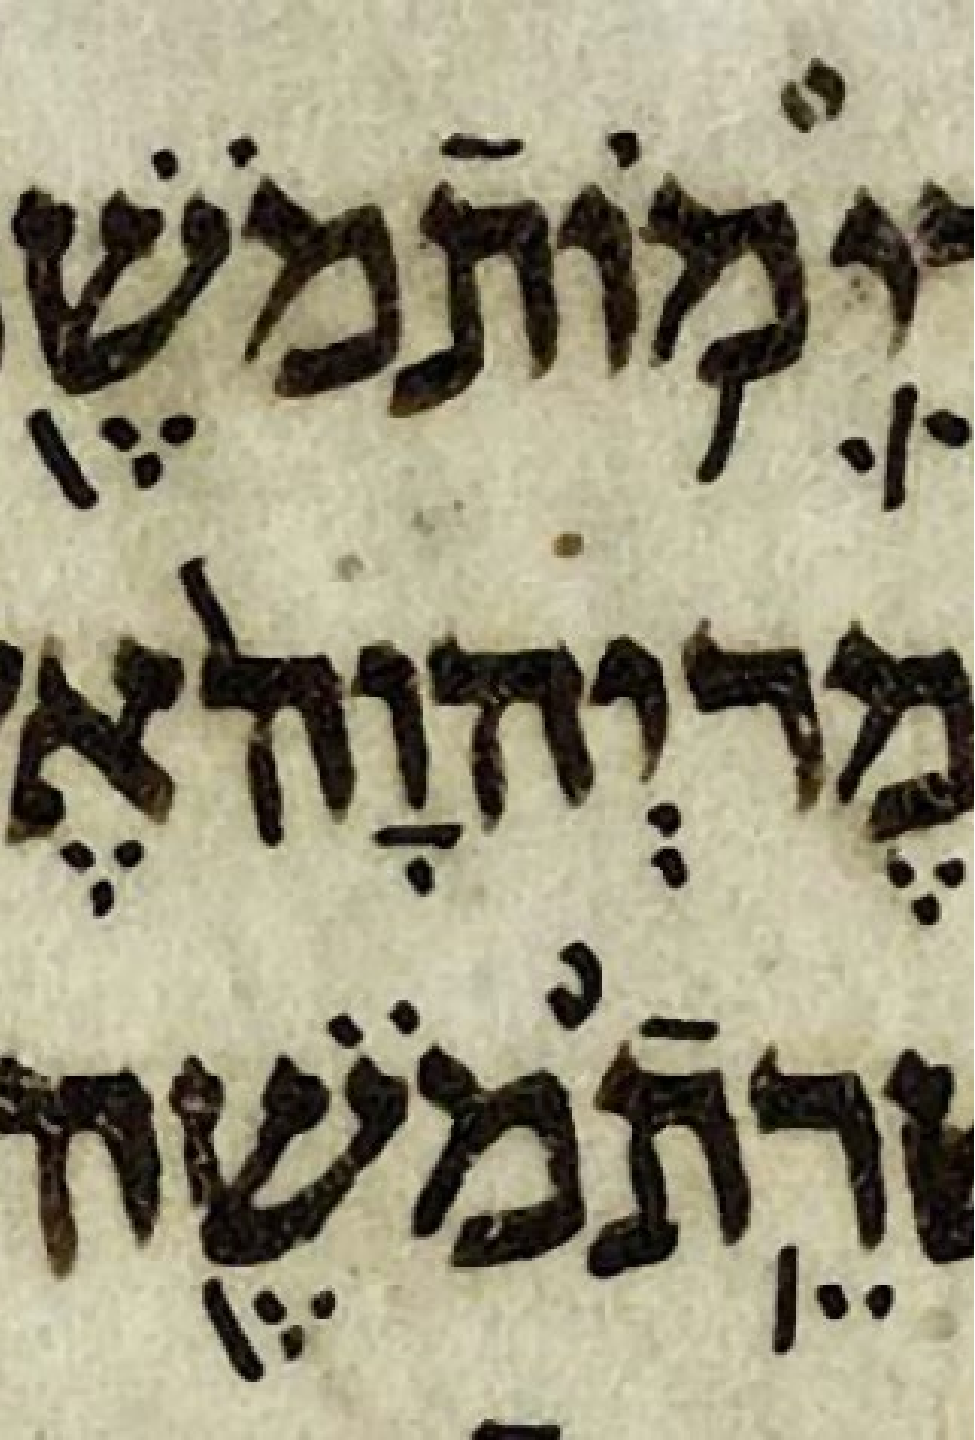 רִ֛י מ֥וֹתֿ מֹשֶׁ֖
מֶר יְהוָה֙ אֶ
שָׁרֵ֥תֿ מֹשֶׁ֖ה